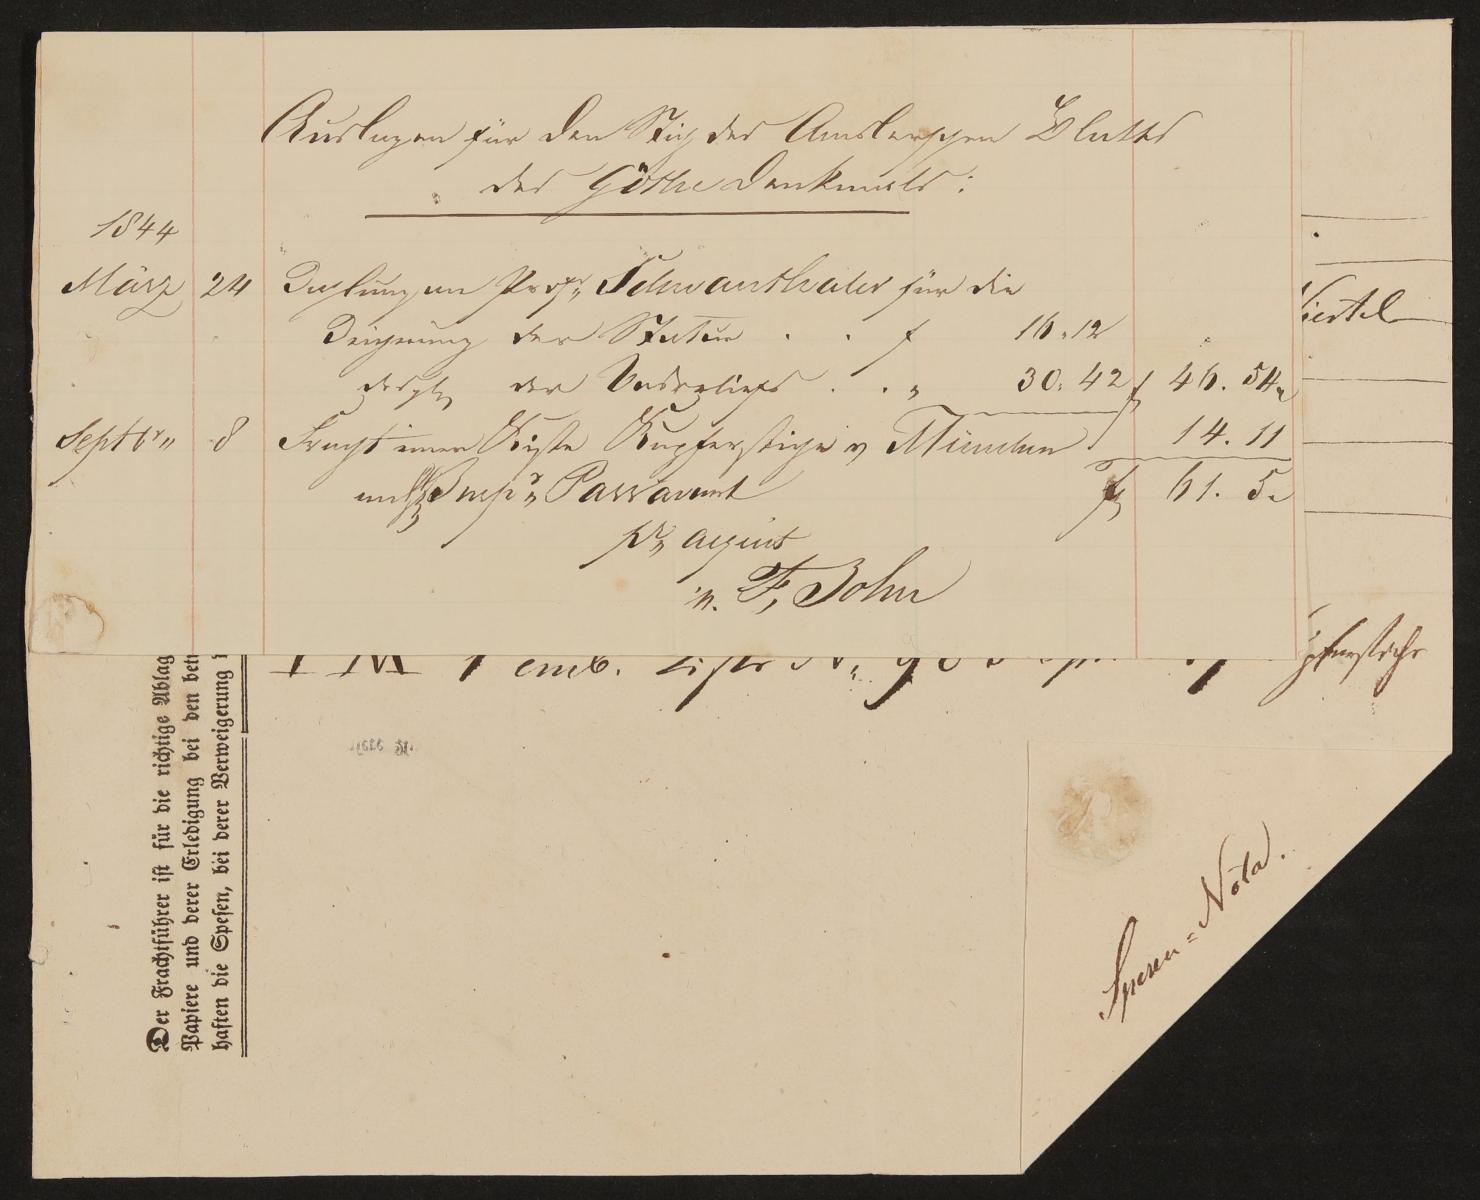 Auslagen für den Stich des Amslerschen Blattes
des Göthe Denkmals:
1844
März 24 Zahlung an Prof. Schwanthaler für die
Zeichnung der Statue . . f 16.12
desgl. der Basreliefs . . " 30.42 f 46.54
Septbr. 8 Fracht einer Kiste Kupferstiche v München 14.11
f 61.5
Insp. Passavant
F. John
Viertel
1 emb. Kiste N.
Kupferstiche
Der Frachtführer ist für die richtige Ablag
Papiere und derer Erledigung bei den betr
haften die Spesen, bei derer Verweigerung
Spesen=Nota.